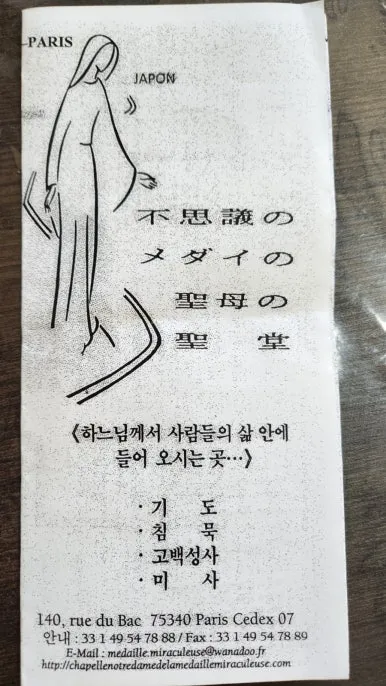 PARIS
JAPON
不思議の
メダイの
聖母の
聖 堂
《하느님께서 사람들의 삶 안에
들어 오시는 곳…》
· 기 도
· 침 묵
· 고백성사
· 미 사
140, rue du Bac 75340 Paris Cedex 07
안내 : 33 1 49 54 78 88 / Fax : 33 1 49 54 78 89
E-Mail : medaille.miraculeuse@wanadoo.fr
http://chapellenotredamedelamedaillemiraculeuse.com